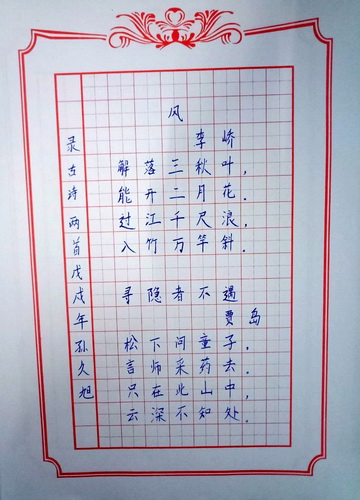 风
李峤
解落三秋叶，
能开二月花.
过江千尺浪，
入竹万竿斜.
寻隐者不遇
贾岛
松下问童子.
言师采药去.
只在此山中，
云深不知处.
录古诗两首戊戌年孙久旭